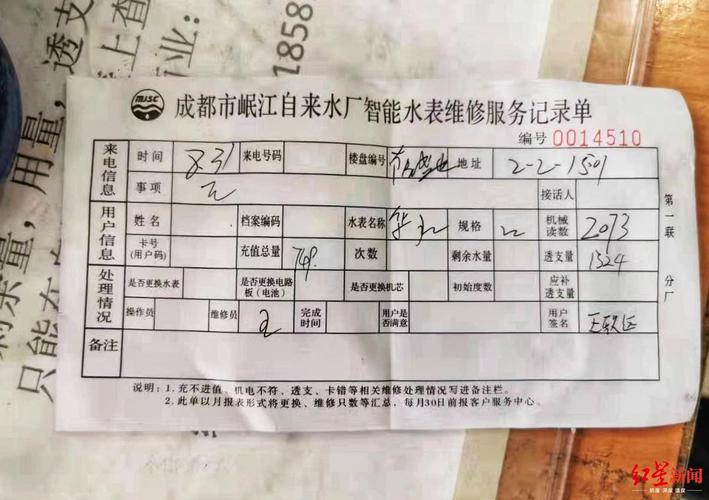 透支
上查
剩余量，用量，
业：
1858
只能在
MJSC
成都市岷江自来水厂智能水表维修服务记录单
编号 0014510
来电信息 时间 8.31 来电号码 楼盘编号 地址 2-2-1501
事项 接话人
用户信息 姓名 档案编码 水表名称 规格 机械读数 2073
卡号（用户码） 充值总量 749. 次数 剩余水量 透支量 1324
处理情况 是否更换水表 是否更换电路板（电池） 是否更换机芯 初始度数 应补透支量
操作员 维修员 完成时间 用户是否满意 用户签名
备注
第一联 分厂
说明：1.充不进值、机电不符、透支、卡错等相关维修处理情况写进备注栏。
2.此单以月报表形式将更换、维修只数等汇总，每月30日前报客户服务中心。
红星新闻